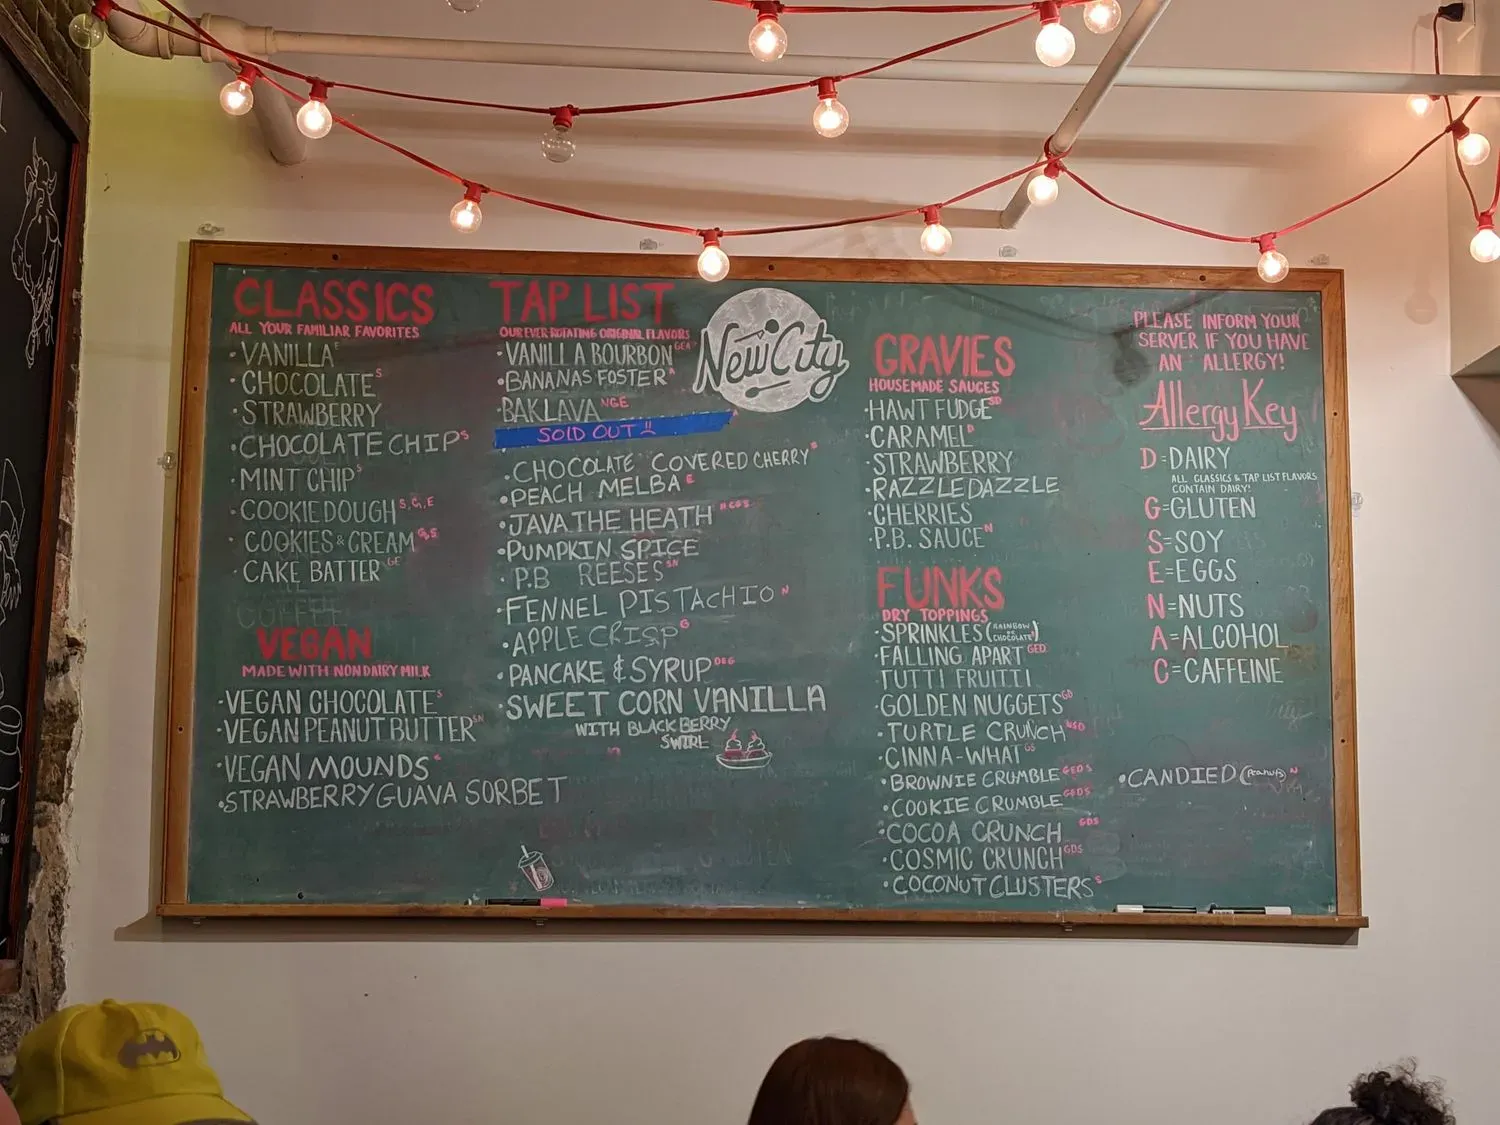 CLASSICS
ALL YOUR FAMILIAR FAVORITES
·VANILLA E
·CHOCOLATE S
·STRAWBERRY
·CHOCOLATE CHIP S
·MINT CHIP S
·COOKIE DOUGH S, G, E
·COOKIES & CREAM G,S
·CAKE BATTER GE
COFFEE
VEGAN
MADE WITH NONDAIRY MILK
·VEGAN CHOCOLATE S
·VEGAN PEANUT BUTTER SN
·VEGAN MOUNDS
·STRAWBERRY GUAVA SORBET
TAP LIST
OUR EVER-ROTATING ORIGINAL FLAVORS
·VANILLA BOURBON GEA
·BANANAS FOSTER A
·BAKLAVA NGE
SOLD OUT
·CHOCOLATE COVERED CHERRY
·PEACH MELBA E
·JAVA THE HEATH
·PUMPKIN SPICE
·P.B REESES SN
·FENNEL PISTACHIO N
·APPLE CRISP G
·PANCAKE & SYRUP
·SWEET CORN VANILLA
WITH BLACKBERRY
SWIRL
New City
GRAVIES
HOUSEMADE SAUCES
·HAWT FUDGE SD
·CARAMEL D
·STRAWBERRY
·RAZZLEDAZZLE
·CHERRIES
·P.B. SAUCE N
FUNKS
DRY TOPPINGS
·SPRINKLES (RAINBOW OR CHOCOLATE)
·FALLING APART GED
·TUTTI FRUITTI
·GOLDEN NUGGETS GD
·TURTLE CRUNCH NSD
·CINNA-WHAT GS
·BROWNIE CRUMBLE GEDS
·COOKIE CRUMBLE GEDS
·COCOA CRUNCH GDS
·COSMIC CRUNCH GDS
·COCONUT CLUSTERS S
PLEASE INFORM YOUR
SERVER IF YOU HAVE
AN ALLERGY!
Allergy Key
D=DAIRY
ALL CLASSICS & TAP LIST FLAVORS
CONTAIN DAIRY!
G=GLUTEN
S=SOY
E=EGGS
N=NUTS
A=ALCOHOL
C=CAFFEINE
·CANDIED (Peanuts) N